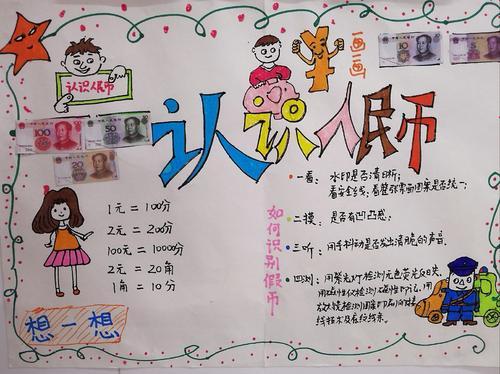 画一画
认识人民币
认识人民币
100
50
20
10
5
1元 = 100分
2元 = 200分
100元 = 10000分
2元 = 20角
1角 = 10分
想一想
如何识别假币
一看: 水印是否清晰;
看安全线;看整张票面图案是否统一;
二摸: 是否有凹凸感;
三听: 用手抖动是否发出清脆的声音.
四测: 用紫光灯检测无色荧光反应,
用磁性仪检测磁性印记,用
放大镜检测图案印刷的接
线技术及底纹线条.